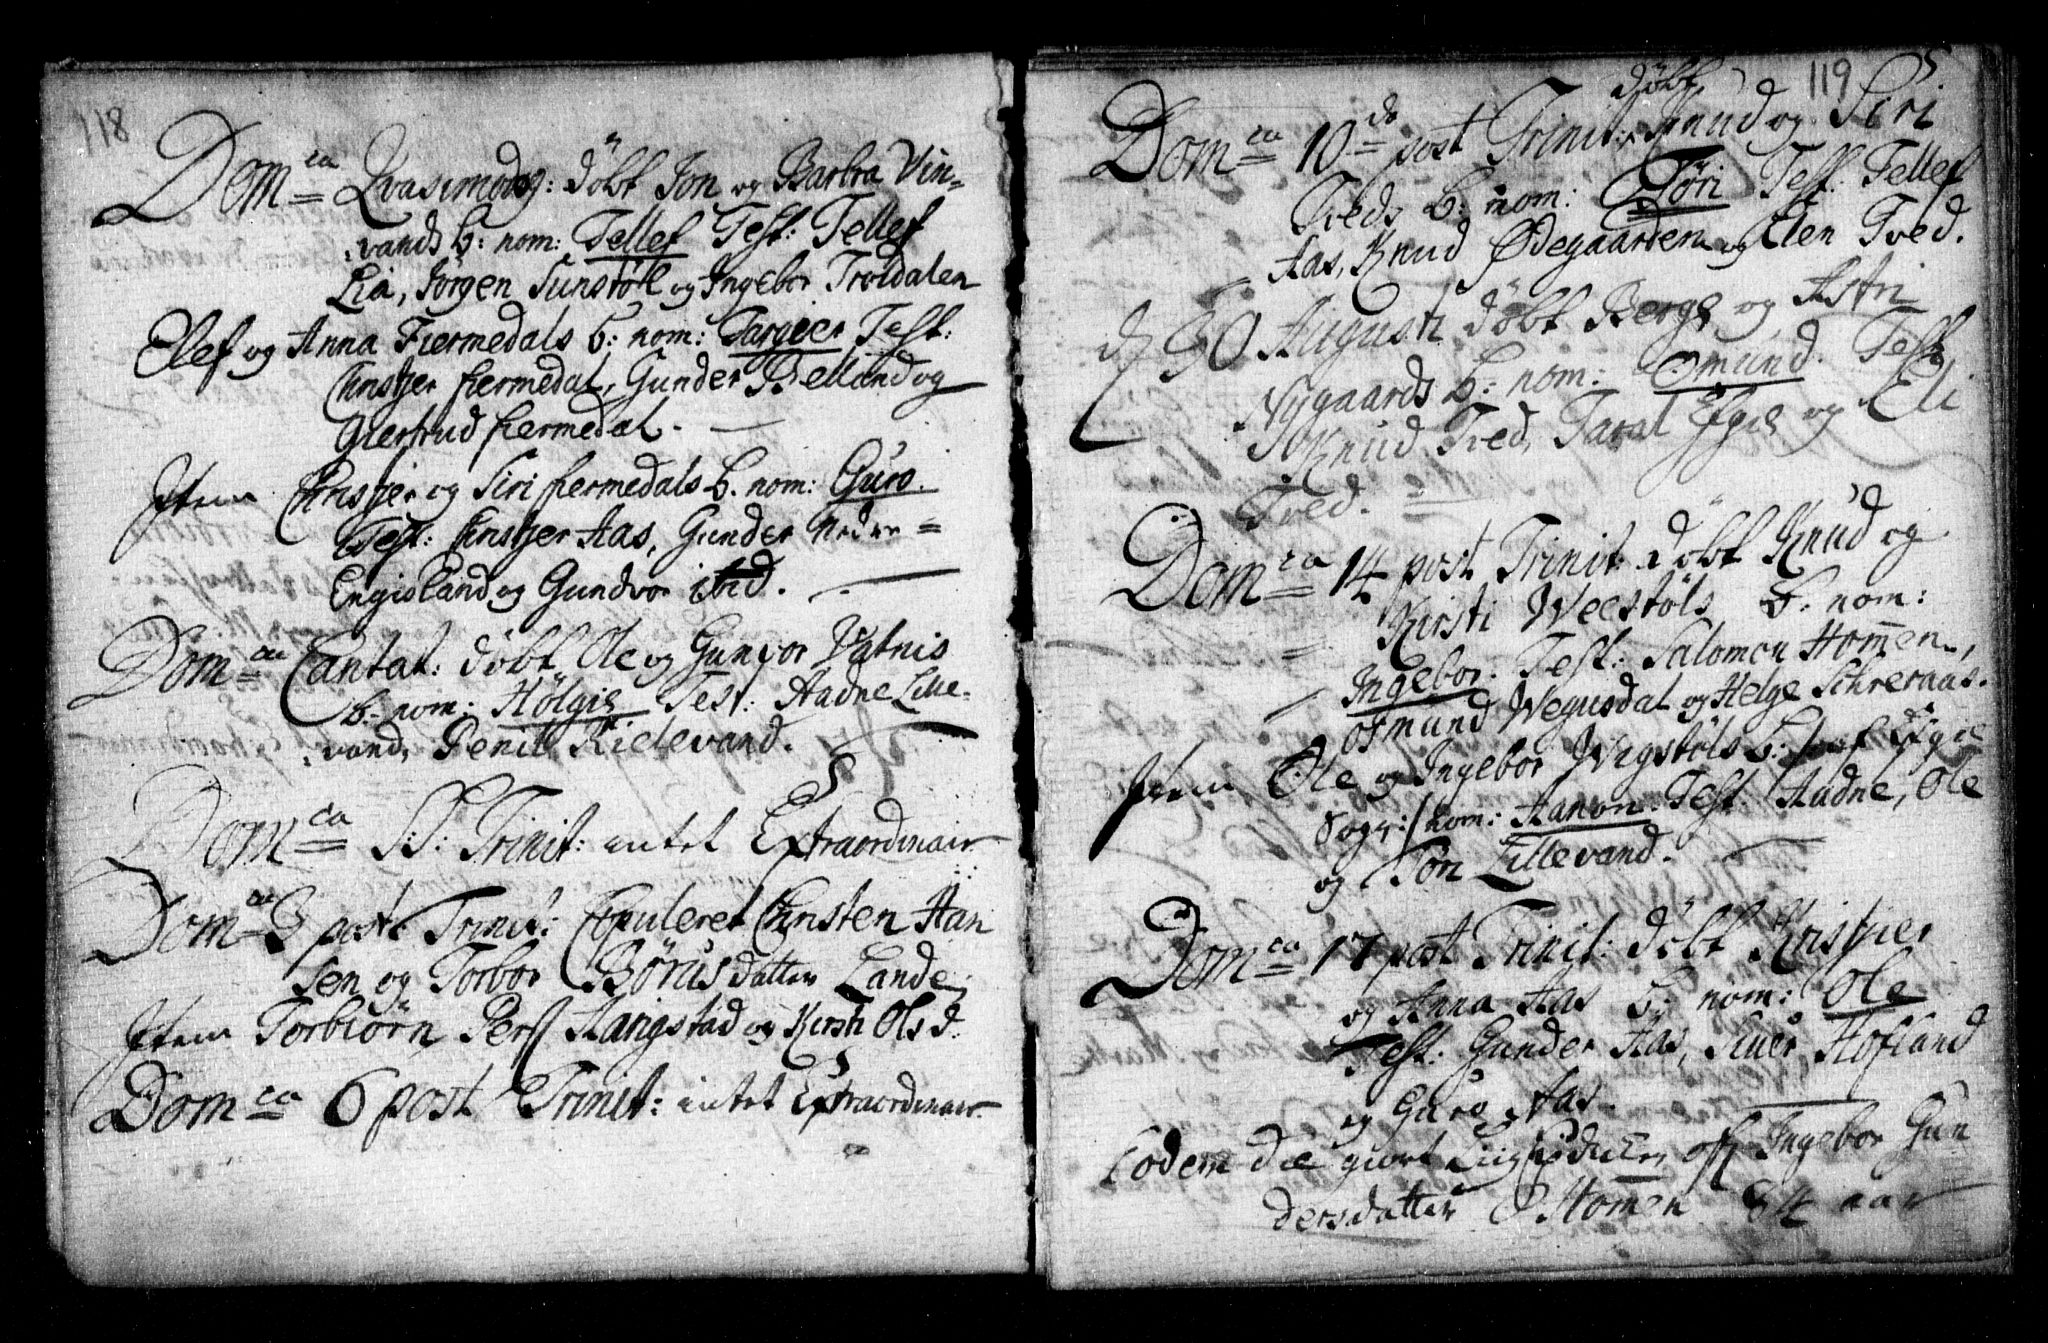 118
Dom:ca Qvasimodog: döbt Jon og Barbra Vin-
vands b: nom: Tellef Test: Tellef
Lia, Jörgen Sunstöll og Ingebor Troldalen
Elef og Anna Fiermedals b: nom: Targier Test:
Christjer fiermedal, Gunder Belland og
Giertrud fiermedal.
Item Christjer og Siri fiermedals b. nom: Guro.
Test: Christjer Aas, Gunder Neder=
Engisland og Gundvor ibid.
Dom:ca Cantat: döbt Ole og Gunvor Vatnis
b: nom: Hölgie Test: Aadne Lille-
vand, Penil Kielevand.
Dom:ca SS: Trinit: intet Extraordinair
Dom:ca 3 post Trinit: Copuleret Christen Han
sen og Torbor Börusdatter Lande,
Item Torbiörn Pers Haugstad og Kirsti Olsd.
Dom:ca 6 post Trinit: intet Extraordinair.
119
döbt
Dom:ca 10de post Trinit: Knud og Siri
Tveds b: nom: Töri Test: Tellef
Aas, Knud Ødegaarden og Elen Tved.
d 30 Augusti döbt Berge og Astri
Nygaards b: nom: Osmund. Test
Knud Tved, Taral Egie og Eli
Tved.
Dom:ca 14 post Trinit: döbt Knud og
Kirsti Weestöls b. nom:
Ingebor. Test: Salomon Homen,
Osmund Wegusdal og Helge Schreraas.
Item Ole og Ingebor Wigstöls b: / af Egie
Sogn: / nom: Aanon. Test: Aadne, Ole
og Töri Lillevand.
Dom:ca 17 post Trinit: döbt Kristjer
og Anna Aas b: nom: Ole
Test: Gunder Aas, Siver Hofland
og Guro Aas.
Eodem die giort Liigprædiken off Ingebor Gun
dersdatter Homen 84 aar